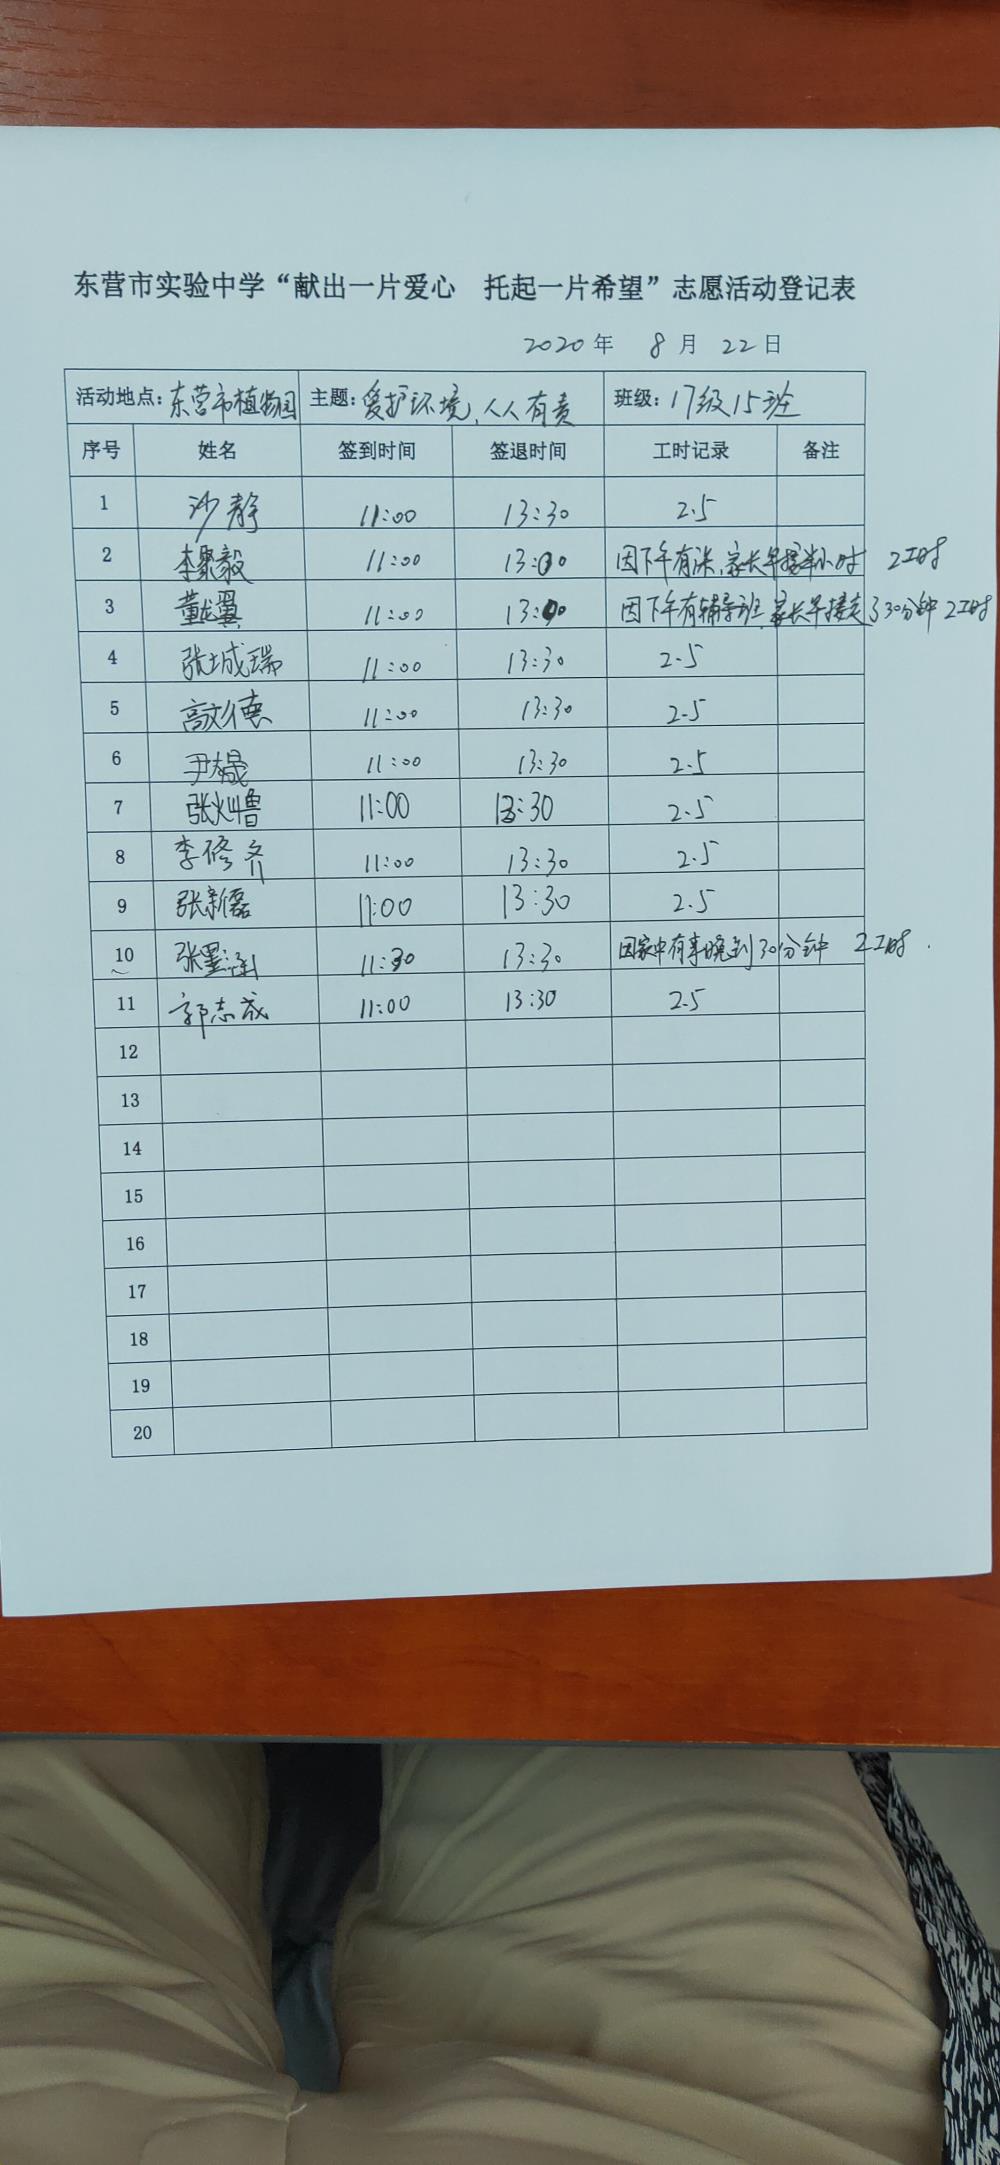 东营市实验中学“献出一片爱心 托起一片希望”志愿活动登记表
2020年 8月 22日
活动地点:东营市植物园 主题:爱护环境,人人有责 班级:17级15班
序号 姓名 签到时间 签退时间 工时记录 备注
1 沙静 11:00 13:30 2.5
2 李聚毅 11:00 13:00 因下午有课,家长早接半小时 2工时
3 董龙翼 11:00 13:00 因下午有辅导班,家长早接走了30分钟 2工时
4 张城瑞 11:00 13:30 2.5
5 高文德 11:00 13:30 2.5
6 11:00 13:30 2.5
7 11:00 13:30 2.5
8 李修齐 11:00 13:30 2.5
9 张新磊 11:00 13:30 2.5
10 张墨涵 11:30 13:30 因家中有事晚到30分钟 2工时.
11 郭志成 11:00 13:30 2.5
12
13
14
15
16
17
18
19
20